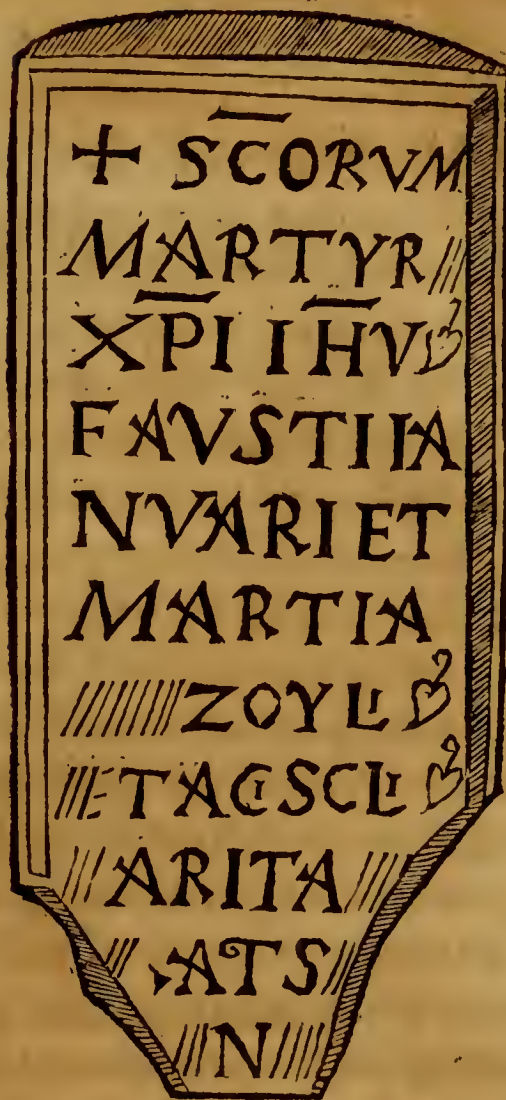 + SC̅ORVM
MARTYR
XP̅I IH̅V❦
FAVSTI IA
NVARI ET
MARTIA
ZOYLI❦
ET ACISCLI❦
ARITA
ATS
N